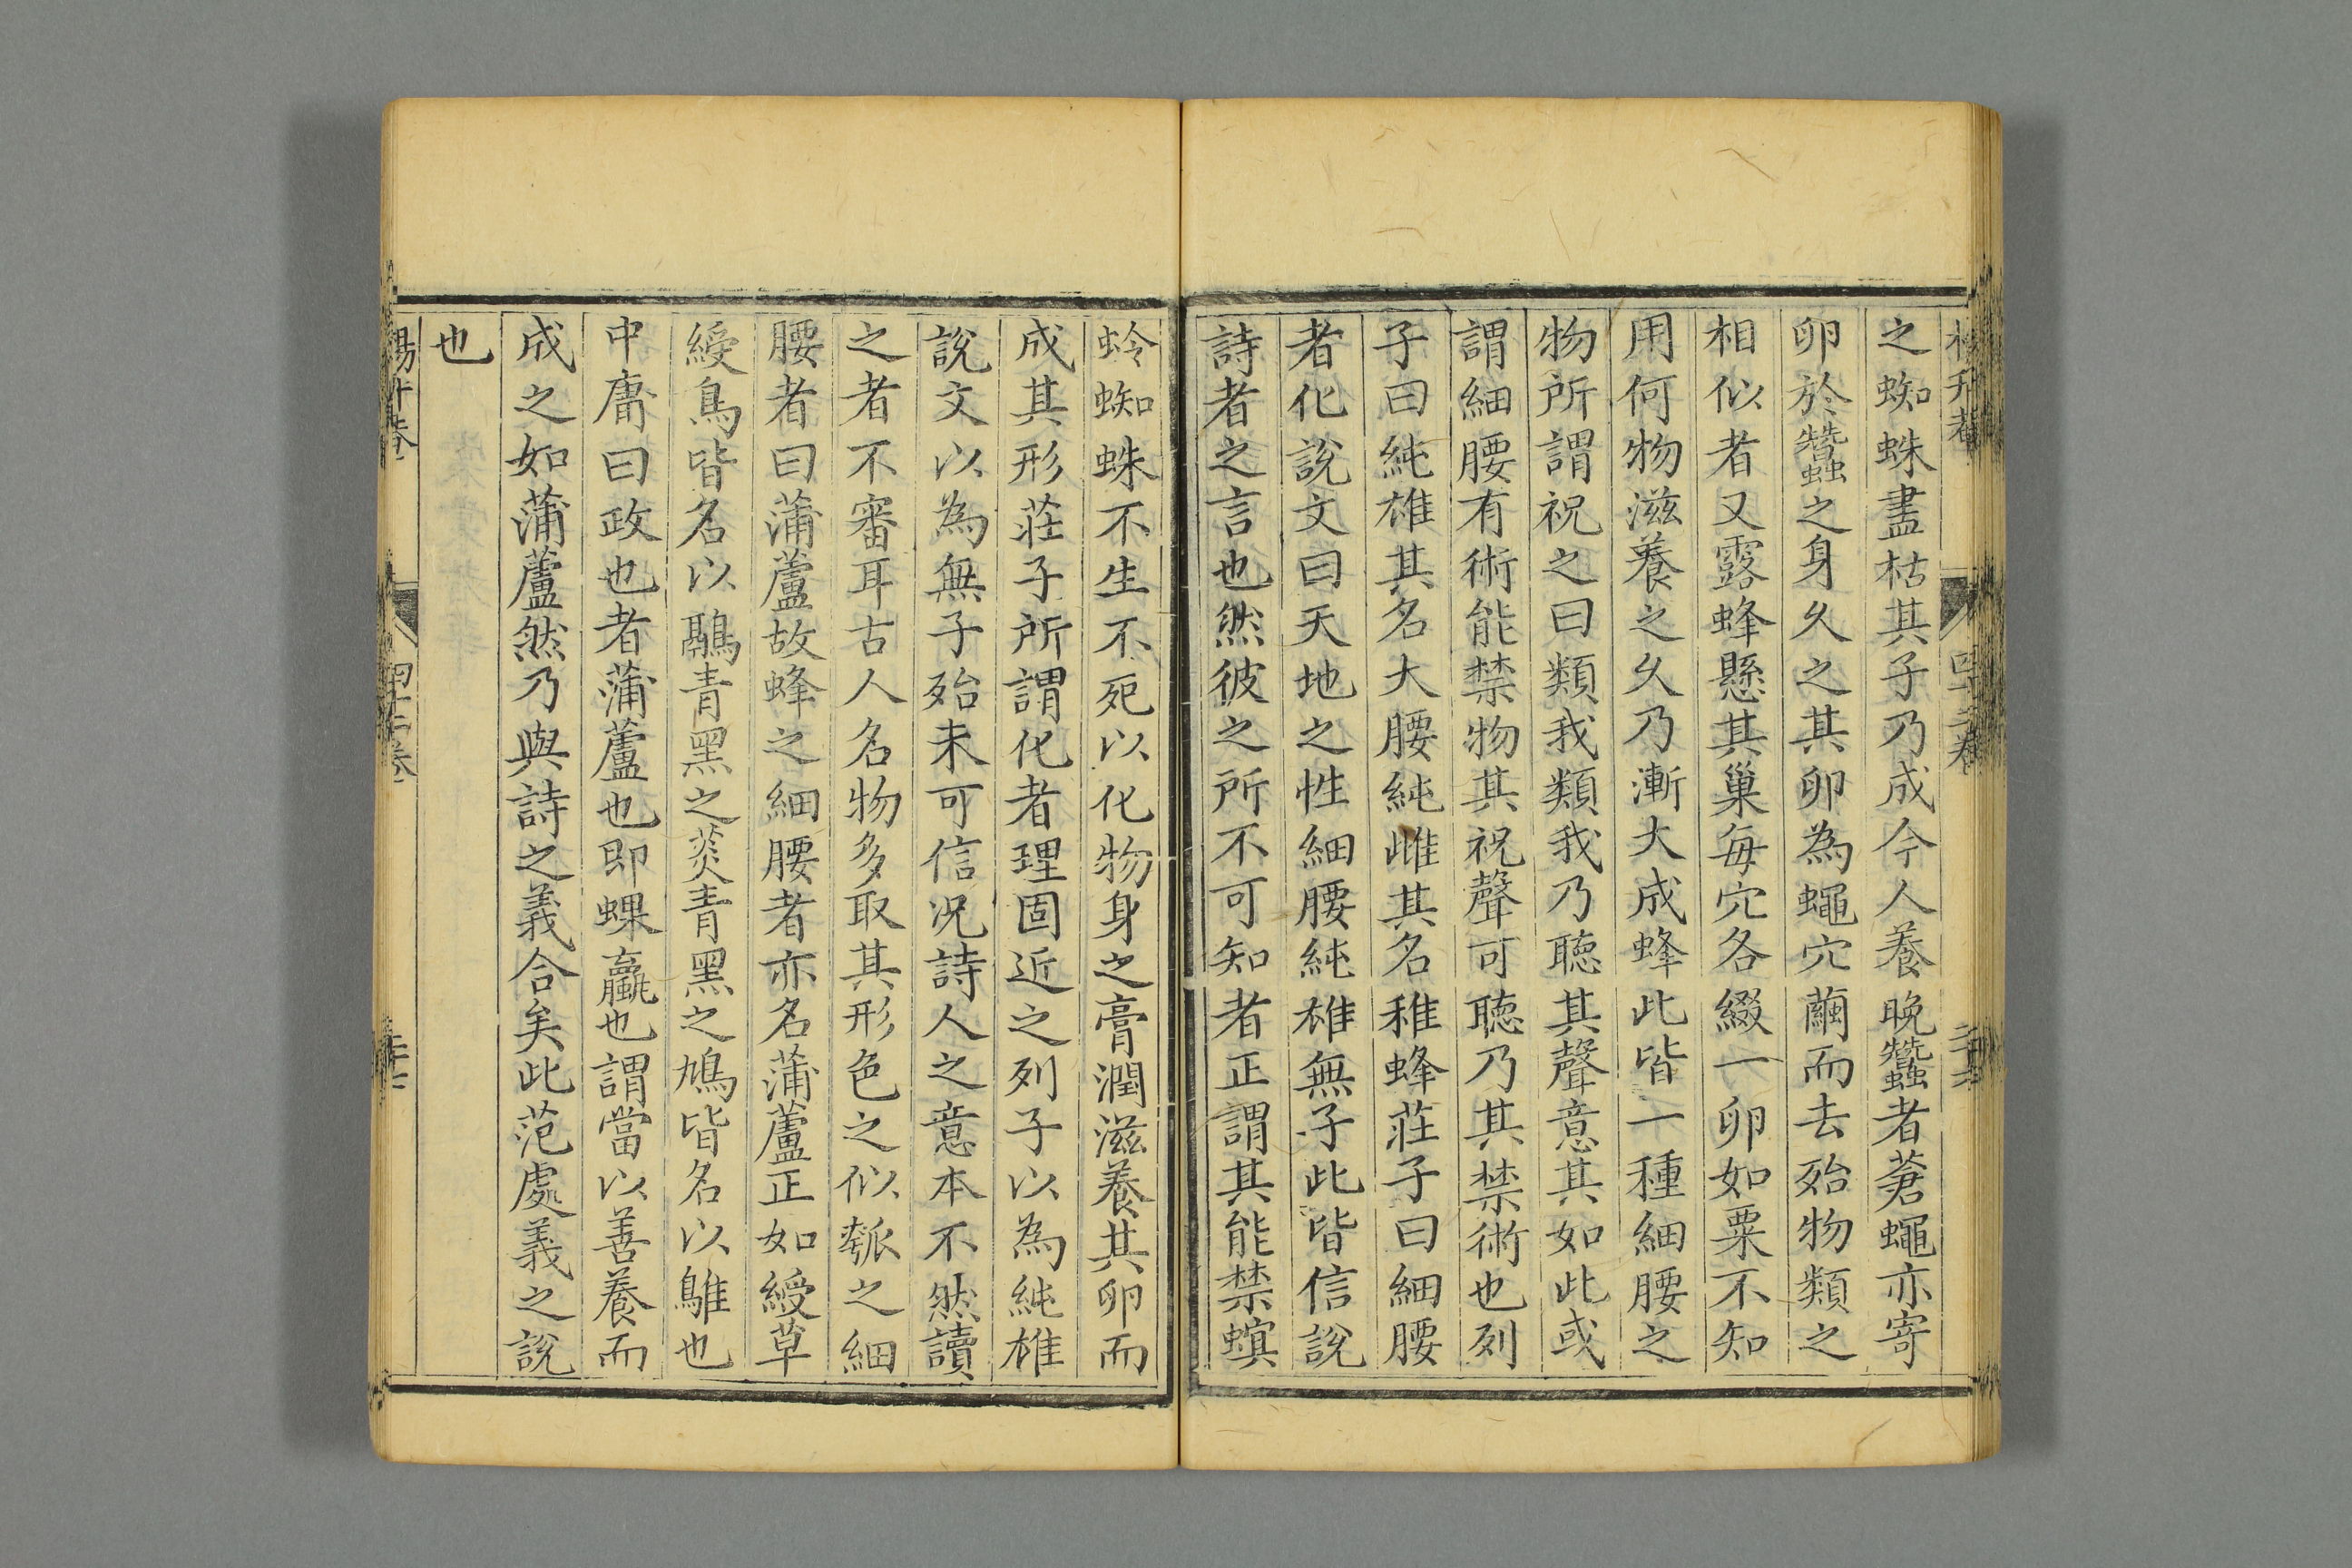 之蜘蛛盡枯其子乃成今人養晚蠶者蒼蠅亦寄
卵於蠶之身久之其卵為蠅穴繭而去殆物類之
相似者又露蜂懸其巢每穴各綴一卵如粟不知
用何物滋養之久乃漸大成蜂此皆一種細腰之
物所謂祝之曰類我類我乃聽其聲意其如此或
謂細腰有術能禁物其祝聲可聽乃其禁術也列
子曰純雄其名大腰純雌其名稚蜂莊子曰細腰
者化說文曰天地之性細腰純雄無子此皆信說
詩者之言也然彼之所不可知者正謂其能禁螟
蛉蜘蛛不生不死以化物身之膏潤滋養其卵而
成其形莊子所謂化者理固近之列子以為純雄
說文以為無子殆未可信况詩人之意本不然讀
之者不審耳古人名物多取其形色之似瓠之細
腰者曰蒲蘆故蜂之細腰者亦名蒲蘆正如綬草
綬鳥皆名以鷊青黑之菼青黑之鳩皆名以鵻也
中庸曰政也者蒲蘆也即蜾蠃也謂當以善養而
成之如蒲蘆然乃與詩之義合矣此范處義之說
也
四十二卷